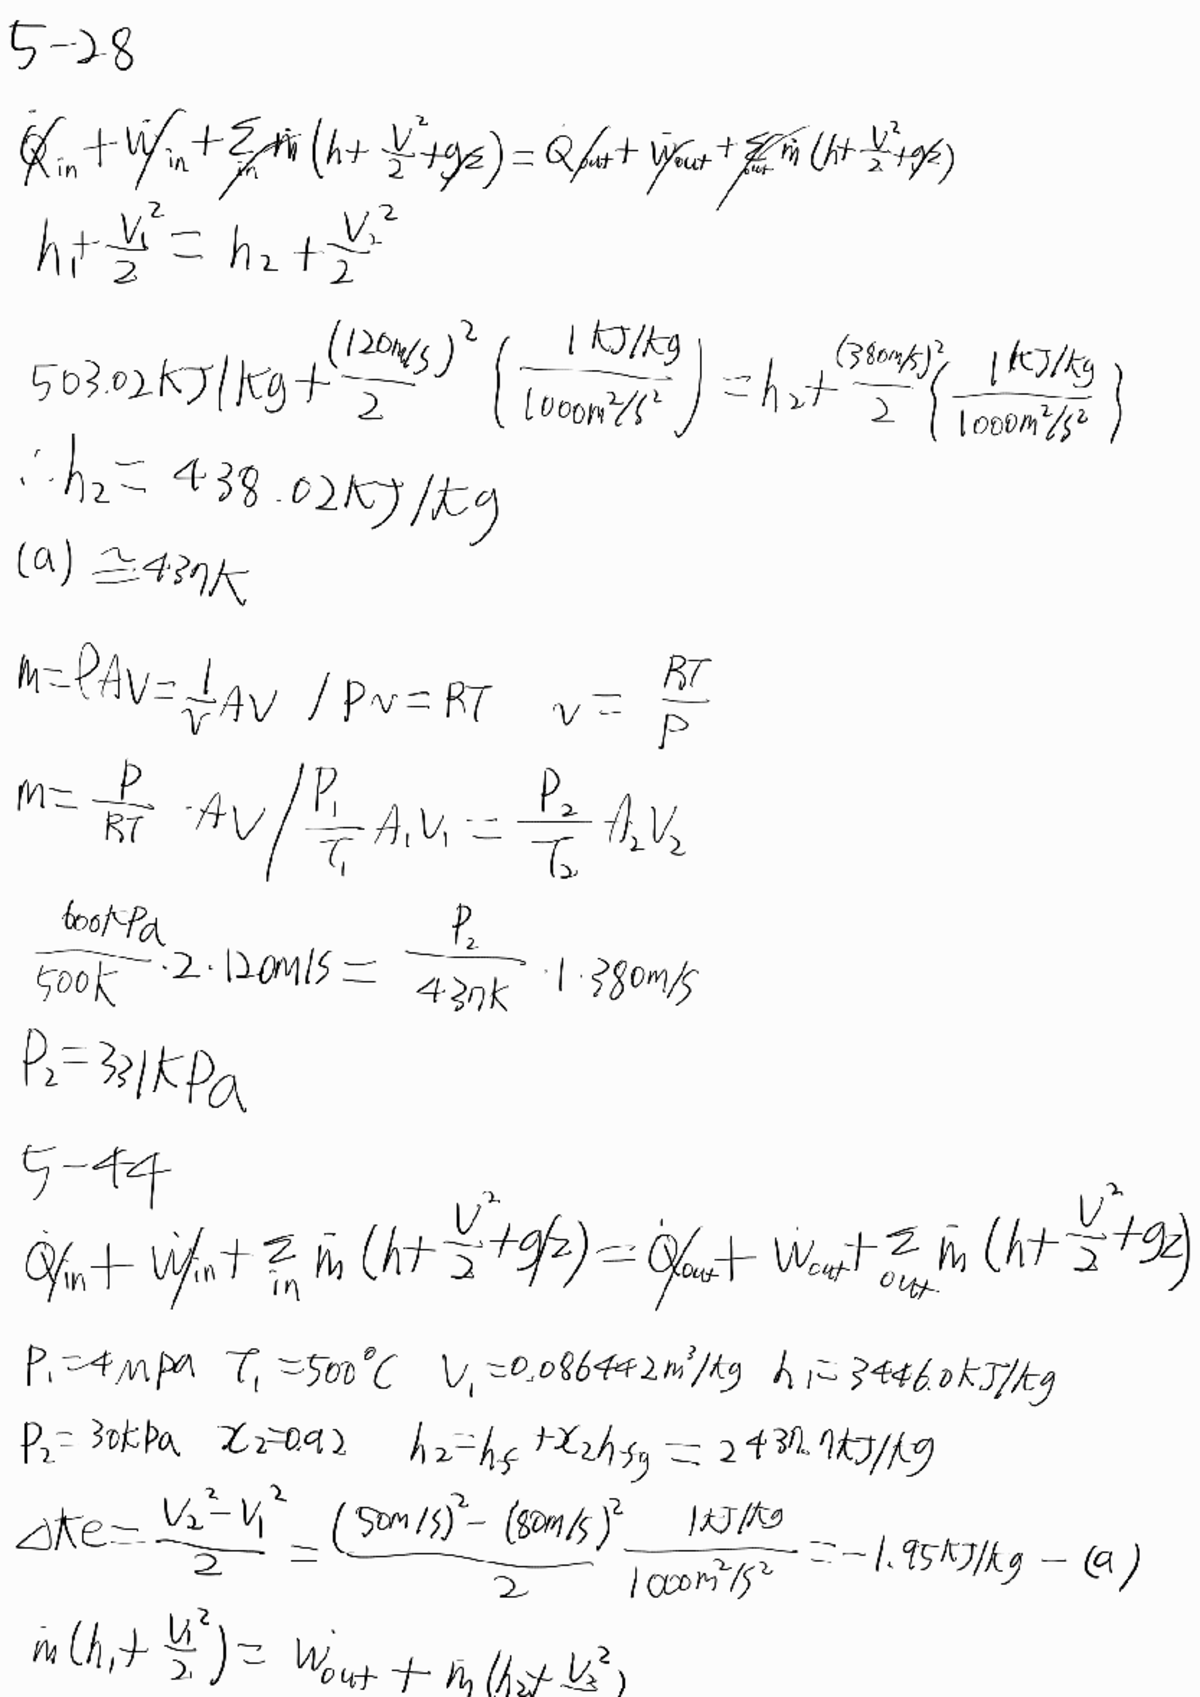 5-28
Q̇in + Ẇin + Σin ṁ (h + V²/2 + gz) = Q̇out + Ẇout + Σout ṁ (h + V²/2 + gz)
h₁ + V₁²/2 = h₂ + V₂²/2
503.02KJ/kg + (120m/s)²/2 (1KJ/kg / 1000m²/s²) = h₂ + (380m/s)²/2 {1KJ/kg / 1000m²/s²}
∴ h₂ = 438.02KJ/kg
(a) ≅ 437K
m = ρAV = 1/v AV / Pv = RT v = RT/P
m = P/RT · AV / P₁/T₁ A₁V₁ = P₂/T₂ A₂V₂
600kPa/500K · 2 · 120m/s = P₂/437K · 1 · 380m/s
P₂ = 331kPa
5-44
Q̇in + Ẇin + Σin ṁ (h + V²/2 + gz) = Q̇out + Ẇout + Σout ṁ (h + V²/2 + gz)
P₁ = 4Mpa T₁ = 500°C V₁ = 0.086442m³/kg h₁ = 3446.0KJ/kg
P₂ = 30kPa x₂ = 0.92 h₂ = hf + x₂hfg = 2437.7KJ/kg
Δke = V₂² - V₁² / 2 = (50m/s)² - (80m/s)² / 2 1KJ/kg / 1000m²/s² = -1.95KJ/kg - (a)
ṁ (h₁ + V₁²/2) = Ẇout + ṁ (h₂ + V₂²/2)